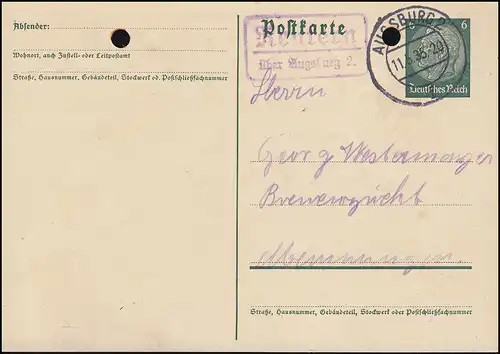 Absender:
Wohnort, auch Zustell- oder Leitpostamt
Straße, Hausnummer, Gebäudeteil, Stockwerk od. Postschließfachnummer
Postkarte
über Augsburg 2.
AUGSBURG 2
11.3.35.20
6
Deutsches Reich
Herrn
Georg Westermayer
Memmingen.
Straße, Hausnummer, Gebäudeteil, Stockwerk oder Postschließfachnummer